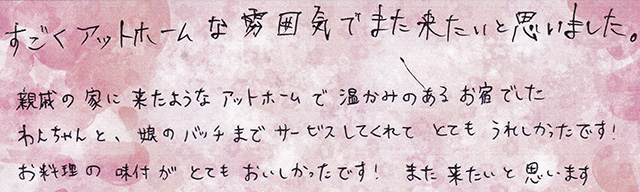 すごくアットホームな雰囲気でまた来たいと思いました。
親戚の家に来たようなアットホームで温かみのあるお宿でした
わんちゃんと、娘のバッチまでサービスしてくれてとてもうれしかったです!
お料理の味付がとてもおいしかったです! また来たいと思います